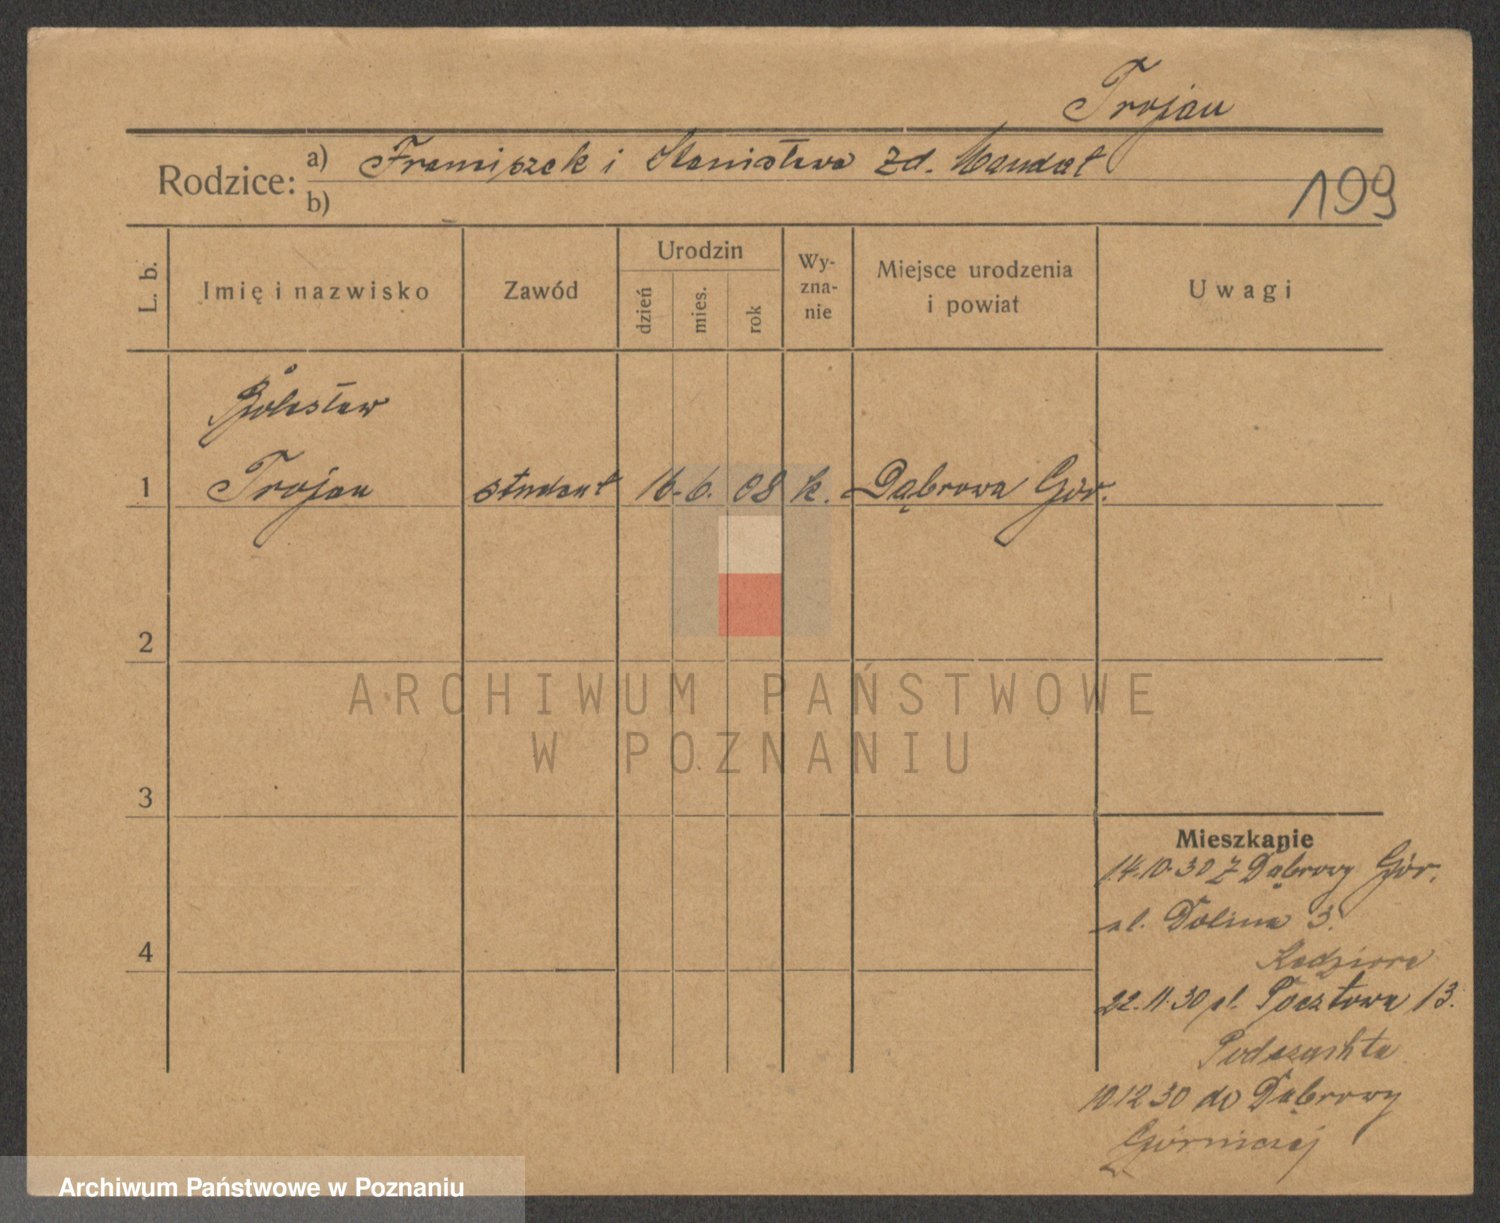 Trojan
Rodzice: a) Franciszek i Stanisława zd. Mandat
b)
199
L. b.
Imię i nazwisko
Zawód
Urodzin
dzień
mies.
rok
Wy-
zna-
nie
Miejsce urodzenia
i powiat
Uwagi
Bolesław
1 Trojan student 16. 6. 08 k. Dąbrowa Gór.
2
ARCHIWUM PAŃSTWOWE
W POZNANIU
3
Mieszkanie
14.10.30 z Dąbrowy Gór.
ul. Dolina 3.
4
Kędziora
22.11.30 ul. Pocztowa 13.
10.12.30 do Dąbrowy
Górniczej
Archiwum Państwowe w Poznaniu